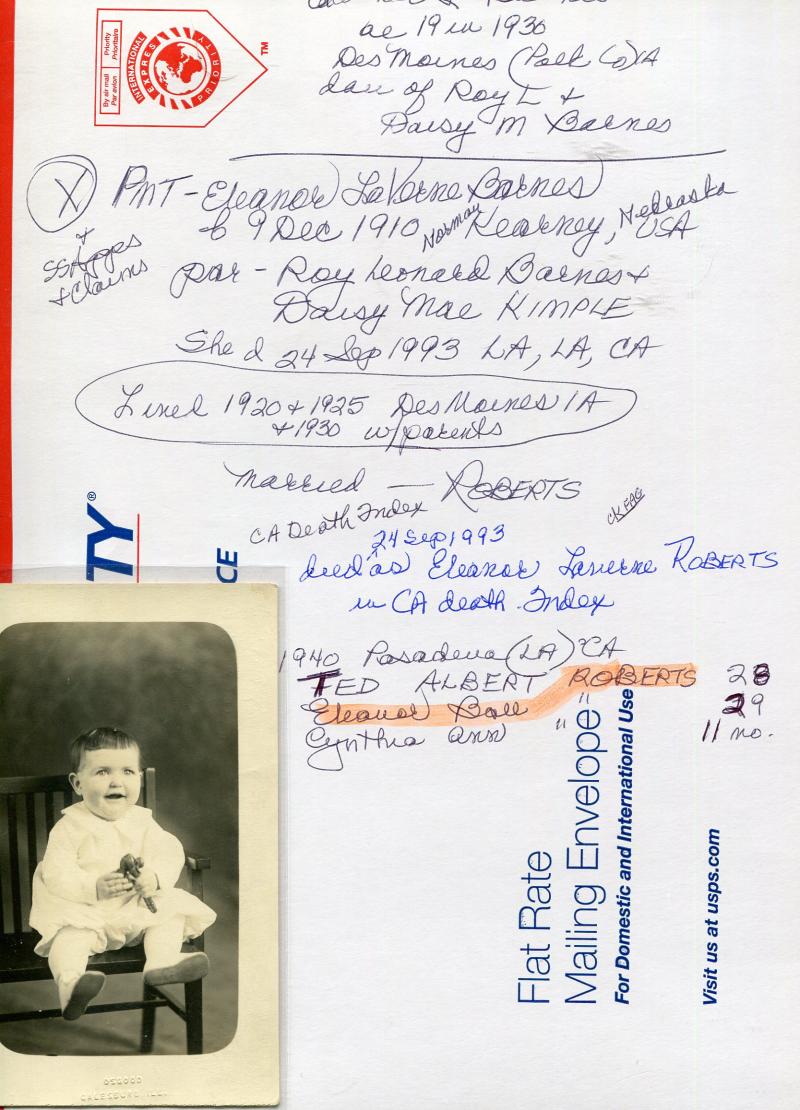 ae 19 in 1930
Des Moines (Polk Co) IA
dau of Roy L &
Daisy M Barnes
Priority
Prioritaire
By air mail
Par avion
INTERNATIONAL
EXPRESS
PRIORITY
TM
X PMT - Eleanor LaVerne Barnes
b 9 Dec 1910 Norman Kearney, Nebraska
USA
+
SS Apps
& Claims
par - Roy Leonard Barnes &
Daisy Mae KIMPLE
She d 24 Sep 1993 LA, LA, CA
Lived 1920 & 1925 Des Moines IA
& 1930 w/parents
married — ROBERTS
CA Death Index
CK FAG
24 Sep 1993
died as Eleanor Laverne ROBERTS
in CA death Index
1940 Pasadena (LA) CA
TED ALBERT ROBERTS 28
Eleanor Ball " 29
Cynthia Ann " 11 mo.
TY®
CE
Flat Rate
Mailing Envelope
For Domestic and International Use
Visit us at usps.com
OSGOOD
GALESBURG ILL.